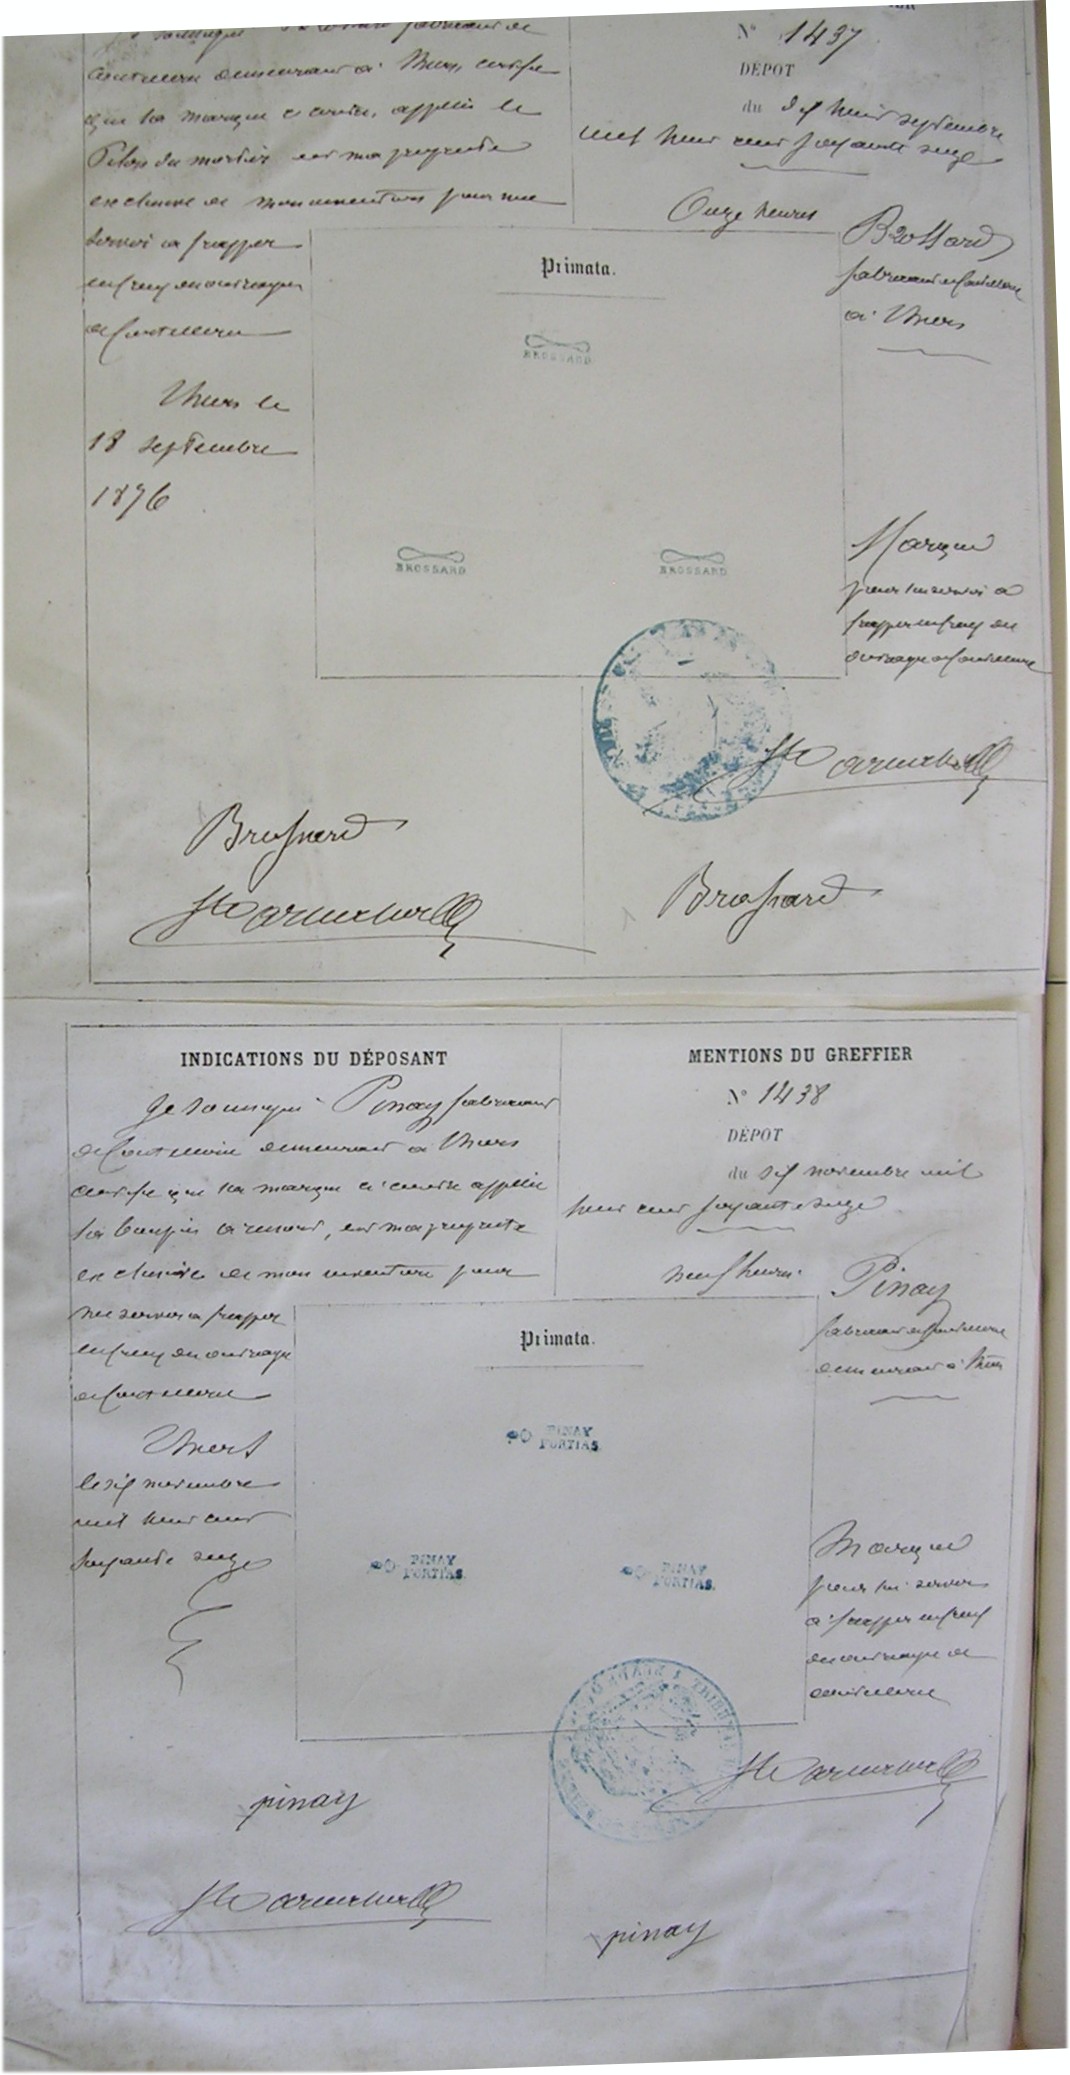 Je soussigné Brossard fabricant de
coutellerie demeurant à Thiers certifie
que la marque ci contre, appelée le
Pilon du mortier est ma propriété
exclusive de mon invention pour me
servir à frapper
enfreuy de ouvrages
de Coutellerie
Thiers le
18 septembre
1876
N° 1437
DÉPOT
du dix huit septembre
mil huit cent soixante seize
Onze heures
Brossard
fabricant de Coutellerie
à Thiers
Primata.
BROSSARD
BROSSARD
BROSSARD
Marque
pour lui servir à
frapper
ouvrage de Coutellerie
Brossard
Brossard
INDICATIONS DU DÉPOSANT
Je soussigné Pinay fabricant
de Coutellerie demeurant à Thiers
certifie que la marque ci contre appelée
la à ressort, est ma propriété
exclusive de mon invention pour
me servir à frapper
ouvrage
de Coutellerie
Thiers
le dix novembre
mil huit cent
soixante seize
MENTIONS DU GREFFIER
N° 1438
DÉPOT
du dix novembre mil
huit cent soixante seize
neuf heures
Pinay
fabricant de Coutellerie
demeurant à Thiers
Primata.
PINAY
FORTIAS.
PINAY
FORTIAS.
PINAY
FORTIAS.
Marque
pour lui servir
à frapper
ouvrage de
coutellerie
pinay
pinay